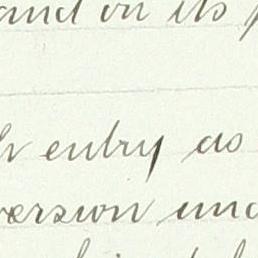 and on its
entry as
version und